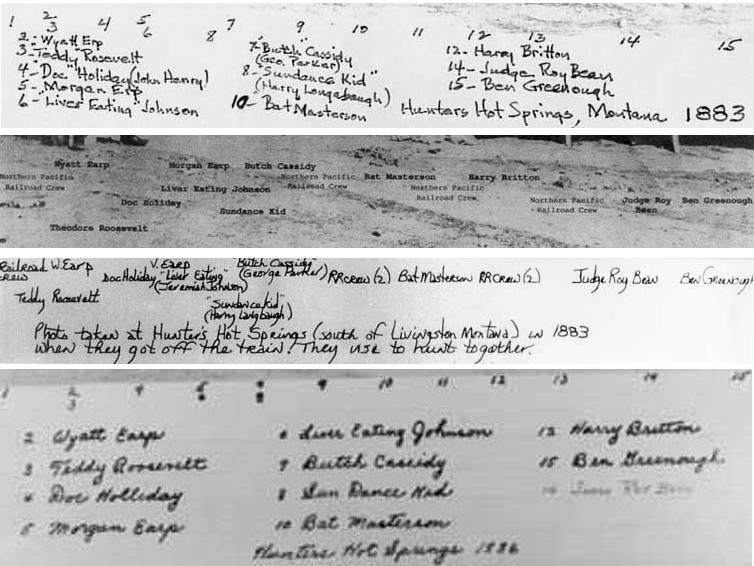 1 2 4 5 7 9 10 12 13 14 15
3 6 8
2- Wyatt Erp
3- Teddy Rosevelt
4- Doc "Holiday (John Henry)
5- Morgan Erp
6- "Liver Eating" Johnson
7- "Butch" Cassidy
(Geo. Parker)
8- "Sundance Kid"
(Harry Longabaugh)
10- Bat Masterson
12- Harry Britton
14- Judge Roy Bean
15- Ben Greenough
Hunters Hot Springs, Montana 1883
Wyatt Earp Morgan Earp Butch Cassidy
Northern Pacific Railroad Crew
Liver Eating Johnson
Northern Pacific Railroad Crew
Bat Masterson Harry Britton
Northern Pacific Railroad Crew
Doc Holiday
Sundance Kid
Northern Pacific Railroad Crew
Judge Roy Bean
Ben Greenough
Theodore Roosevelt
Railroad Crew
W. Earp
Teddy Roosevelt
Doc Holiday
V. Earp
"Liver Eating"
(Jeremiah Johnson)
Butch Cassidy
(George Parker)
"Sundance Kid"
(Harry Langbaugh)
RR Crew (2) Bat Masterson RR Crew (2) Judge Roy Bean Ben Greenough
Photo taken at Hunter's Hot Springs (south of Livingston Montana) in 1883
when they got off the train! They use to hunt together.
1 2 4 9 10 11 12 13 14 15
3
2 Wyatt Earp
3 Teddy Roosevelt
4 Doc Holliday
5 Morgan Earp
6 Liver Eating Johnson
7 Butch Cassidy
8 Sun Dance Kid
10 Bat Masterson
Hunters Hot Springs 1886
13 Harry Britton
15 Ben Greenough